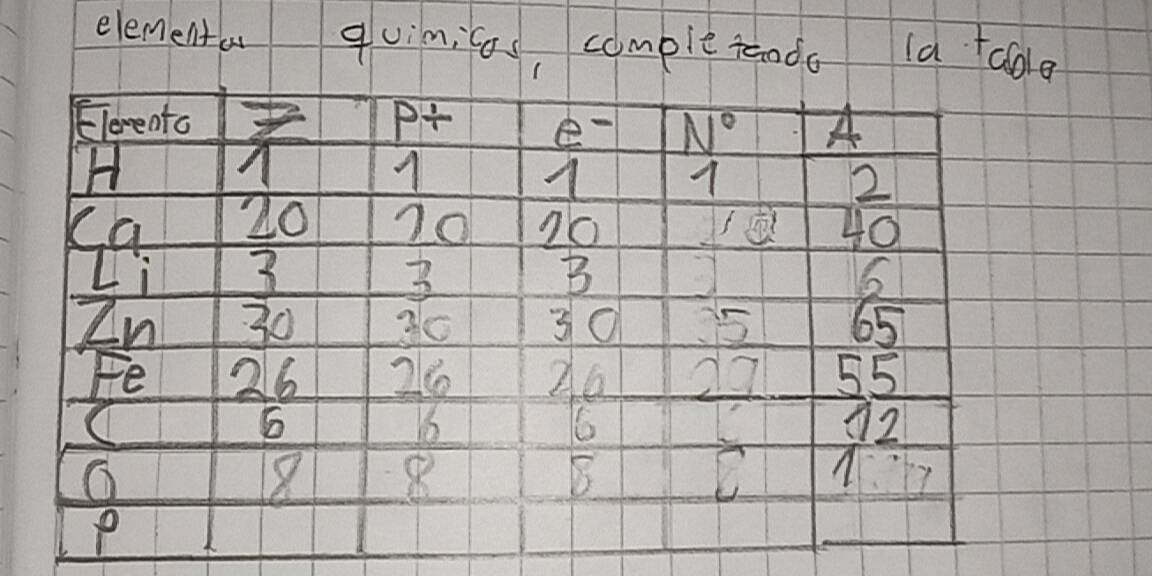 elementos químicos, completando la tabla
Elemento Z P+ e- N° A
H 1 1 1 1 2
Ca 20 20 20 40
Li 3 3 3 3 6
Zn 30 30 30 35 65
Fe 26 26 26 29 55
C 6 6 6 12
O 8 8 8 8
P